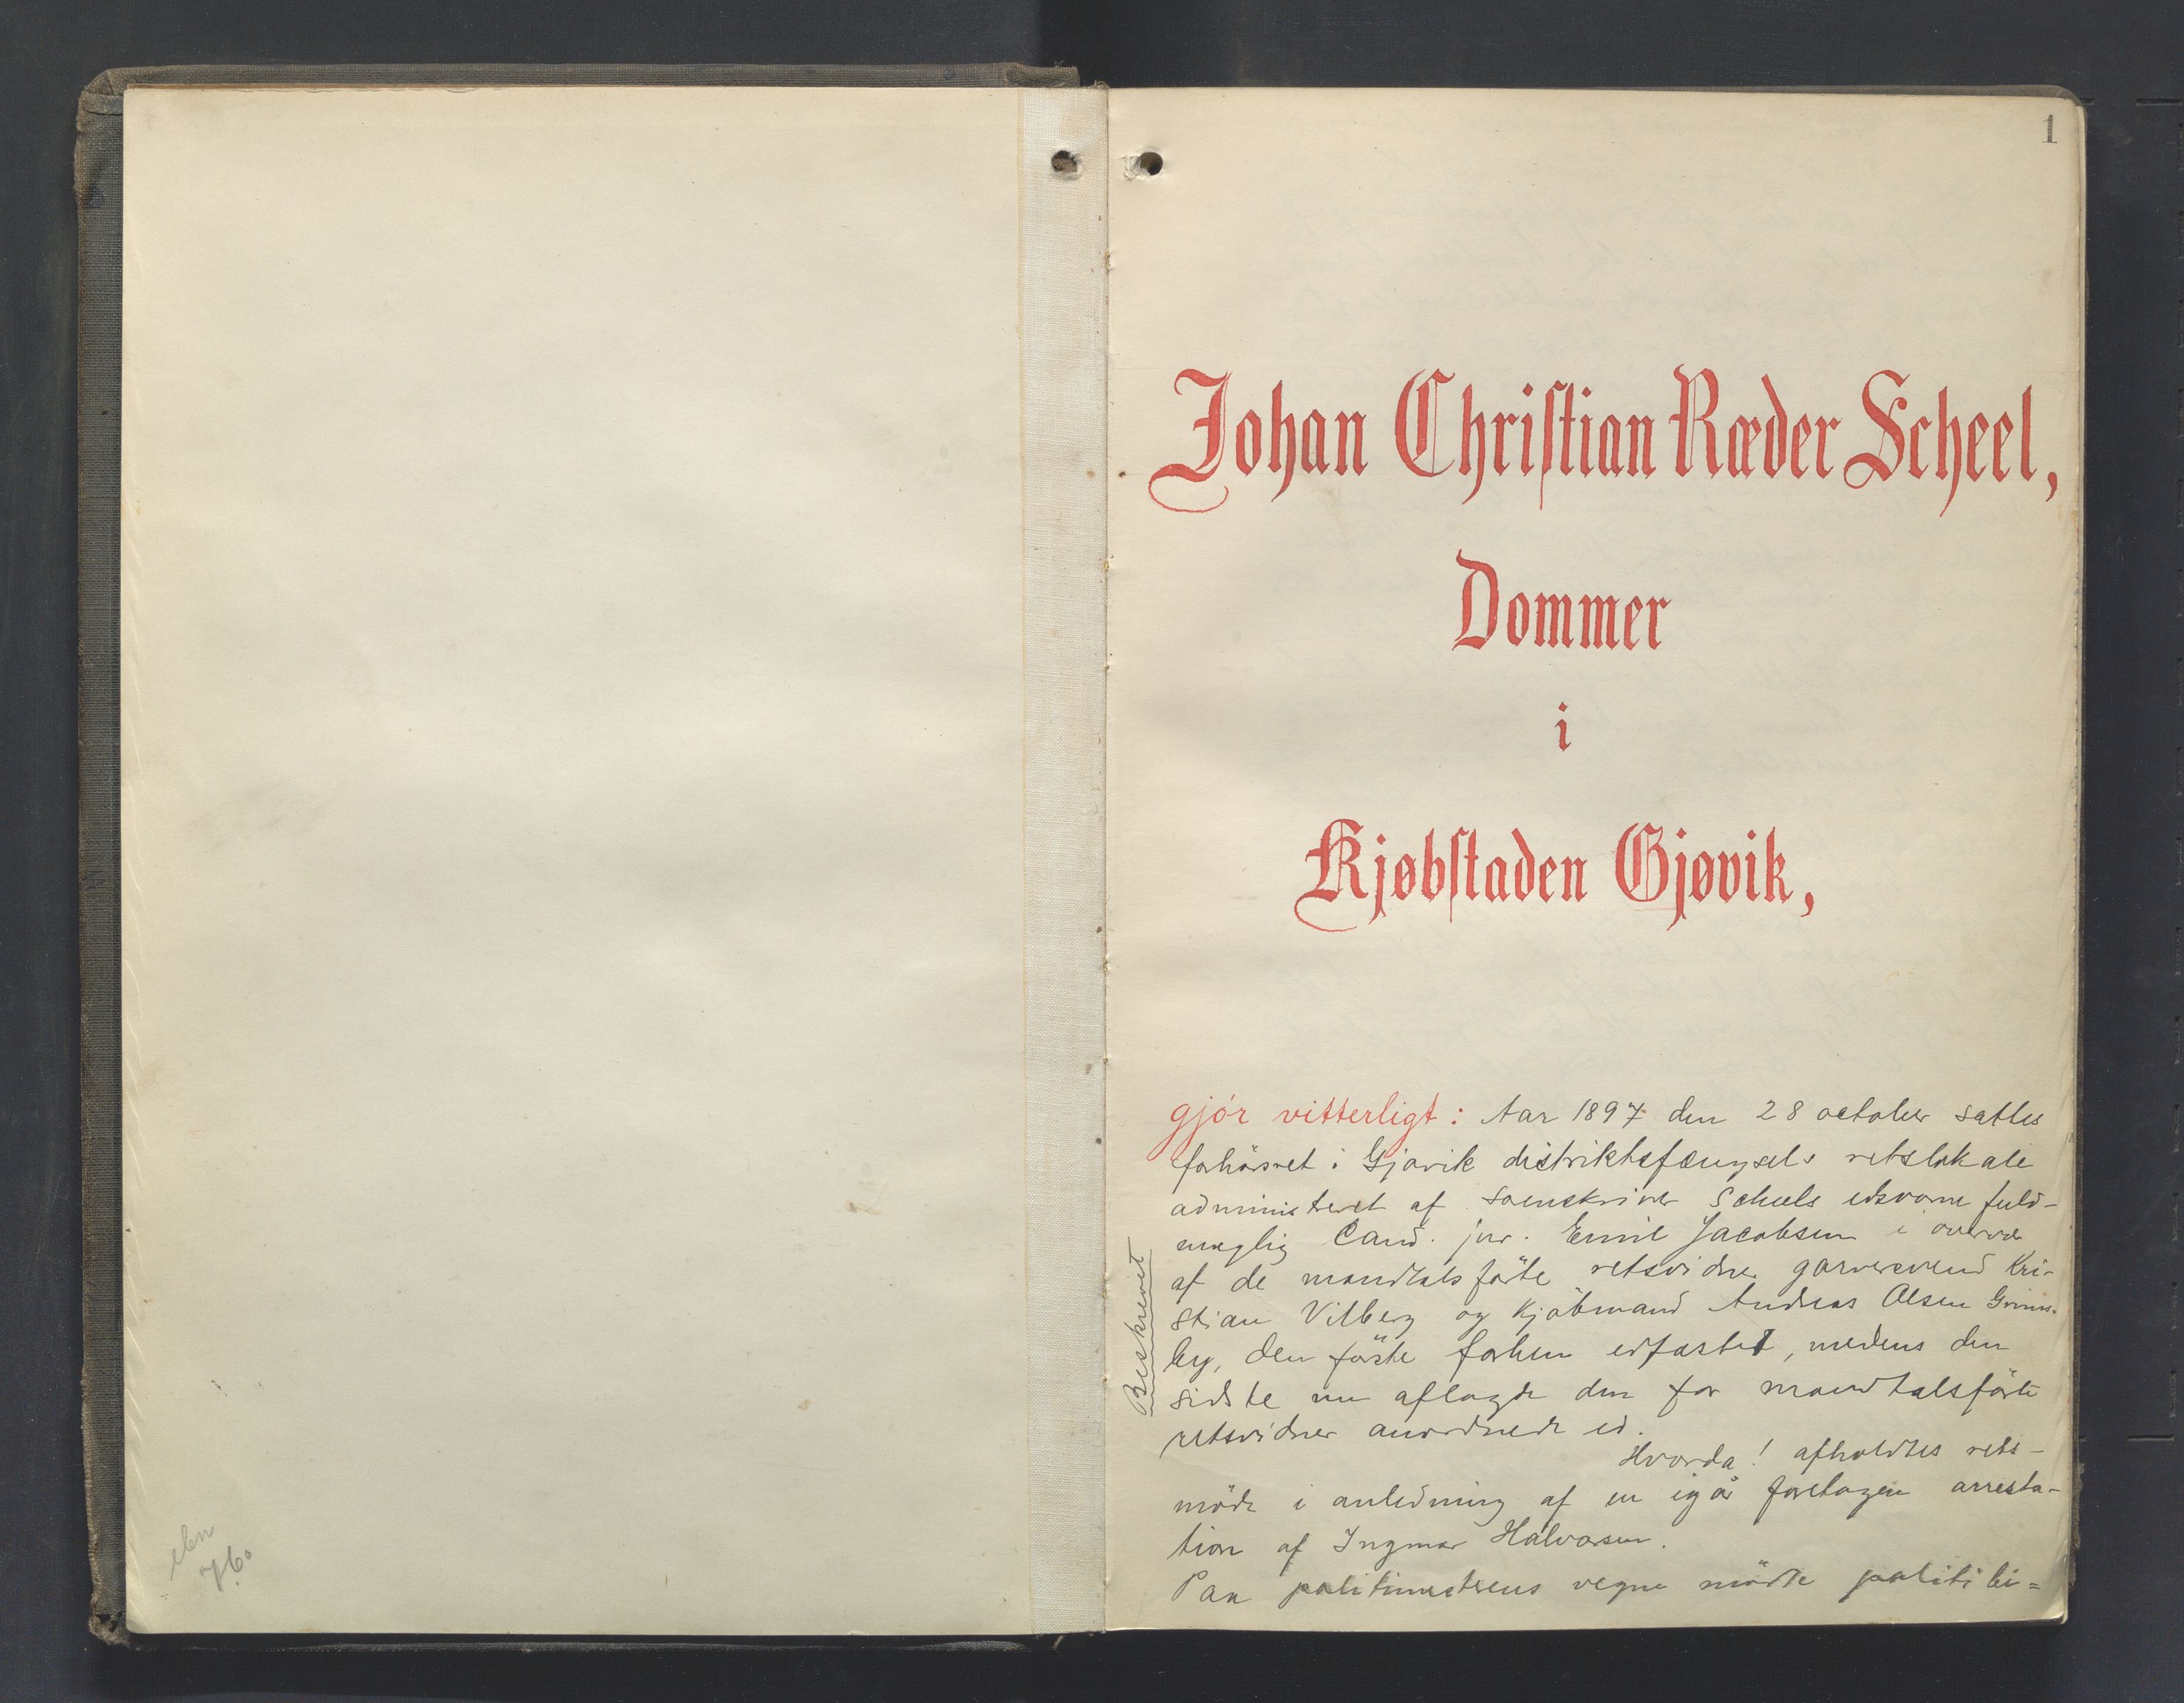 1
Johan Christian Ræder Scheel,
Dommer
i
Kjøbstaden Gjøvik,
gjör vitterligt: Aar 1897 den 28 october sattes
forhörsret i Gjøvik distriktsfængsels retslokale
administreret af sorenskriver Scheels edsvorne fuld-
mægtig Cand. jur. Emil Jacobsen i overvær
af de mandtalsförte retsvidner garversvend Kri-
stian Vilberg og Kjöbmand Andreas Olsen Grims-
by, den förste forhen edfæstet, medens den
sidste nu aflagde den for mandtalsförte
retsvidner anordnede ed.
Hvorda! afholdtes rets-
möde i anledning af en igår foretagen arresta-
tion af Ingmar Halvorsen.
Paa politimesterens vegne mödte politibe=
Beskrevet
76